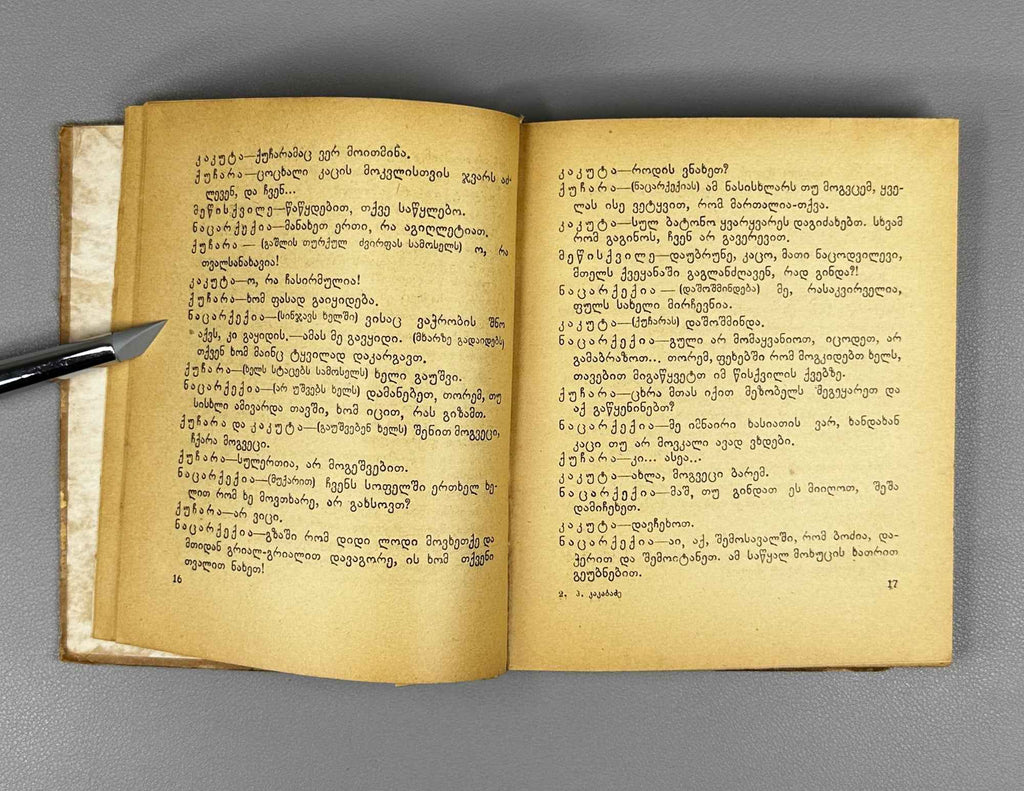 კაკუტა—ქუჩარამაც ვერ მოითმინა.
ქუჩარა—ცოცხალი კაცის მოკვლისთვის ჯვარს აძ-
ლევენ, და ჩვენ...
მეწისქვილე—წაწყდებით, თქვე საწყლებო.
ნაცარქექია—მანახეთ ერთი, რა აგიღლეტიათ.
ქუჩარა — (გაშლის თურქულ ძვირფას სამოსელს) ო, რა
თვალსანახავია!
კაკუტა—ო, რა ჩასირმულია!
ქუჩარა—ხომ ფასად გაიყიდება.
ნაცარქექია—(სინჯავს ხელში) ვისაც ვაჭრობის შნო
აქვს, კი გაყიდის.—ამას მე გავყიდი. (მხარზე გადაიდებს)
თქვენ ხომ მაინც ტყვილად დაკარგავთ.
ქუჩარა—(ხელს სტაცებს სამოსელს) ხელი გაუშვი.
ნაცარქექია—(არ უშვებს ხელს) დამანებეთ, თორემ, თუ
სისხლი ამივარდა თავში, ხომ იცით, რას გიზამთ.
ქუჩარა და კაკუტა—(გაუშვებენ ხელს) შენით მოგვეცი,
ჩქარა მოგვეცი.
ქუჩარა—სულერთია, არ მოგეშვებით.
ნაცარქექია—(მუქარით) ჩვენს სოფელში ერთხელ ხე-
ლით რომ ხე მოვთხარე, არ გახსოვთ?
ქუჩარა—არ ვიცი.
ნაცარქექია—გზაში რომ დიდი ლოდი მოვხეთქე და
მთიდან გრიალ-გრიალით დავაგორე, ის ხომ თქვენი
თვალით ნახეთ!
16
კაკუტა—როდის ვნახეთ?
ქუჩარა—(ნაცარქექიას) ამ ნასისხლარს თუ მოგვცემ, ყვე-
ლას ისე ვეტყვით, რომ მართალია-თქვა.
კაკუტა—სულ ბატონო ყვარყვარეს დაგიძახებთ. სხვამ
რომ გაგინოს, ჩვენ არ გავერევით.
მეწისქვილე—დაუბრუნე, კაცო, მათი ნაცოდვილევი,
მთელს ქვეყანაში გაგლანძღავენ, რად გინდა?!
ნაცარქექია—(დაშოშმინდება) მე, რასაკვირველია,
ფულს სახელი მირჩევნია.
კაკუტა—(ქუჩარას) დაშოშმინდა.
ნაცარქექია—გული არ მომაყვანიოთ, იცოდეთ, არ
გამაბრაზოთ... თორემ, ფეხებში რომ მოგკიდებთ ხელს,
თავებით მიგაწყვეტთ იმ წისქვილის ქვებზე.
ქუჩარა—ცხრა მთას იქით მეზობელს შეგეყარეთ და
აქ გაწყენინებთ?
ნაცარქექია—მე იმნაირი ხასიათის ვარ, ხანდახან
კაცი თუ არ მოვკალი ავად ვხდები.
ქუჩარა—კი... ასეა...
კაკუტა—ახლა, მოგვეცი ბარემ.
ნაცარქექია—მაშ, თუ გინდათ ეს მიიღოთ, შეშა
დამიჩეხეთ.
კაკუტა—დავჩეხოთ.
ნაცარქექია—აი, აქ, შემოსავალში, რომ ბოძია, და-
ჰერით და შემოიტანეთ. ამ საწყალ მოხუცის ხათრით
გეუბნებით.
17
2. პ. კაკაბაძე